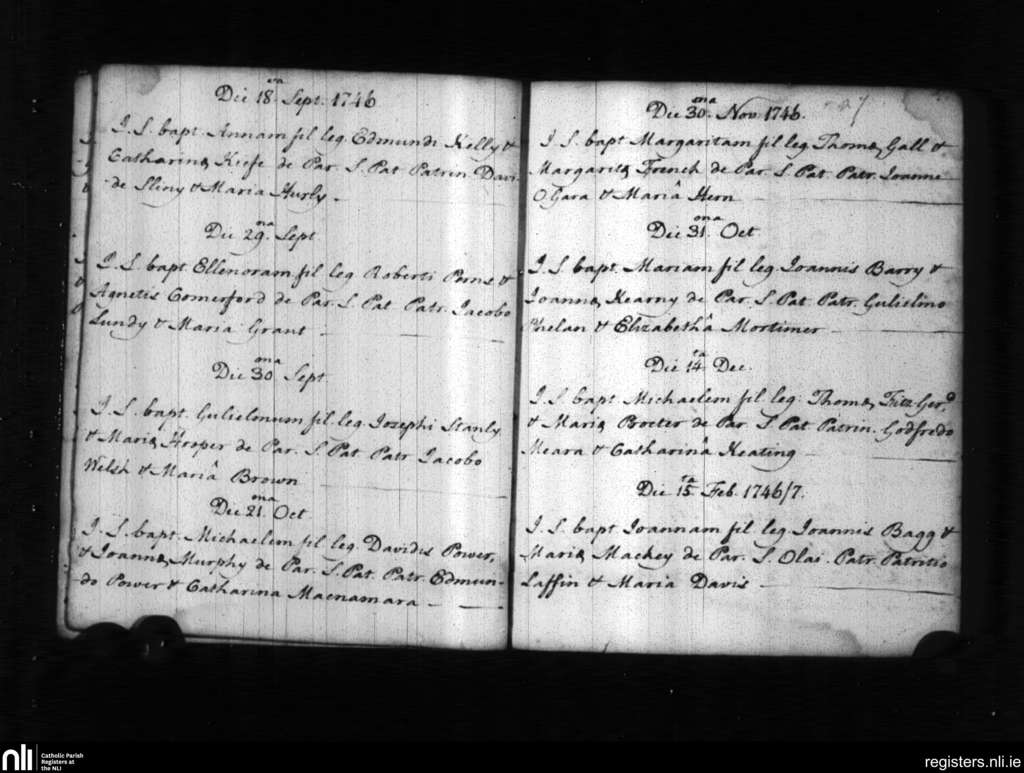 Die 18.va Sept. 1746
I. S. bapt. Annam fil leg. Edmundi Kelly &
Catharinæ Kiefe de Par. S. Pat Patrin Davi-
de Sliny & Maria Hurly.
Die 29.na Sept
I. S. bapt. Ellenoram fil leg Roberti &
Agnetis Comerford de Par. S. Pat Patr. Jacobo
Lundy & Maria Grant
Die 30.ma Sept.
I. S. bapt. Gulielmum fil. leg. Josephi Stanly
& Mariæ Hooper de Par. S. Pat Patr Jacobo
Welsh & Mariâ Brown
Die 21.ma Oct
I. S. bapt. Michaelem fil leg. Davidis Power,
& Joannæ Murphy de Par. S. Pat. Patr. Edmun-
do Power & Catharina Macnamara
Die 30.ma Nov 1746.
I. S. bapt Margaritam fil leg. Thomæ Gall &
Margaritæ French de Par. S. Pat. Patr. Joanne
OGara & Mariâ Hern
Die 31.ma Oct
I. S. bapt. Mariam fil leg. Joannis Barry &
Joannæ Kearny de Par. S. Pat Patr. Gulielmo
Phelan & Elizabethâ Mortimer
Die 14.ta Dec.
I. S. bapt Michaelem fil leg. Thomæ FitzGer.d
& Mariæ Procter de Par. S. Pat Patrin. Godfredo
Meara & Catharinâ Keating
Die 15.ta Feb. 1746/7.
I. S. bapt Joannam fil leg Joannis Bagg &
Mariæ Mackey de Par. S. Olai. Patr. Patritio
Laffin & Maria Davis
nli
Catholic Parish
Registers at
the NLI
registers.nli.ie